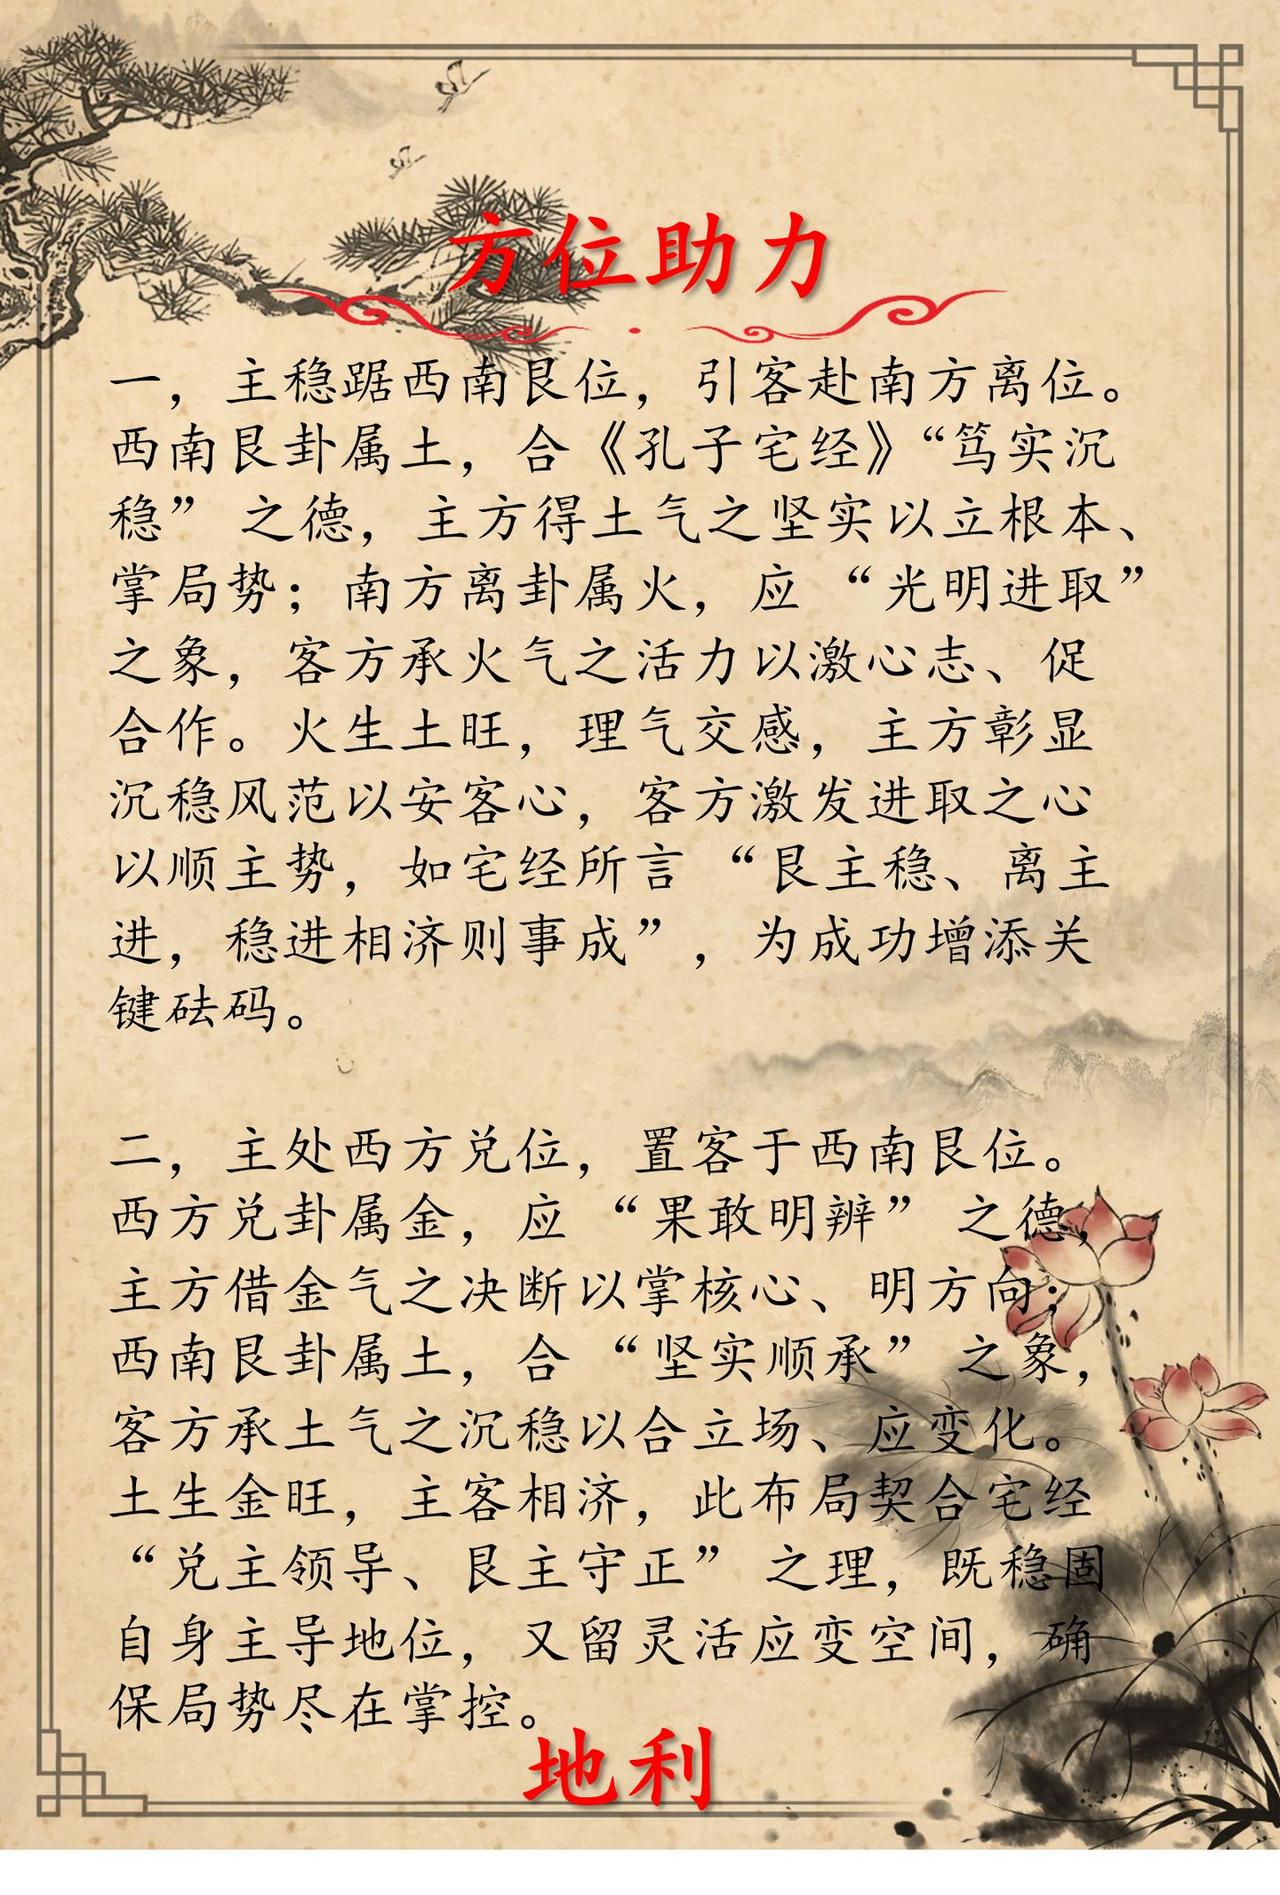 方位助力
一，主稳踞西南艮位，引客赴南方离位。
西南艮卦属土，合《孔子宅经》“笃实沉
稳” 之德，主方得土气之坚实以立根本、
掌局势；南方离卦属火，应 “光明进取”
之象，客方承火气之活力以激心志、促
合作。火生土旺，理气交感，主方彰显
沉稳风范以安客心，客方激发进取之心
以顺主势，如宅经所言 “艮主稳、离主
进，稳进相济则事成”，为成功增添关
键砝码。
二，主处西方兑位，置客于西南艮位。
西方兑卦属金，应 “果敢明辨” 之德，
主方借金气之决断以掌核心、明方向；
西南艮卦属土，合 “坚实顺承” 之象，
客方承土气之沉稳以合立场、应变化。
土生金旺，主客相济，此布局契合宅经
“兑主领导、艮主守正” 之理，既稳固
自身主导地位，又留灵活应变空间，确
保局势尽在掌控。
地利